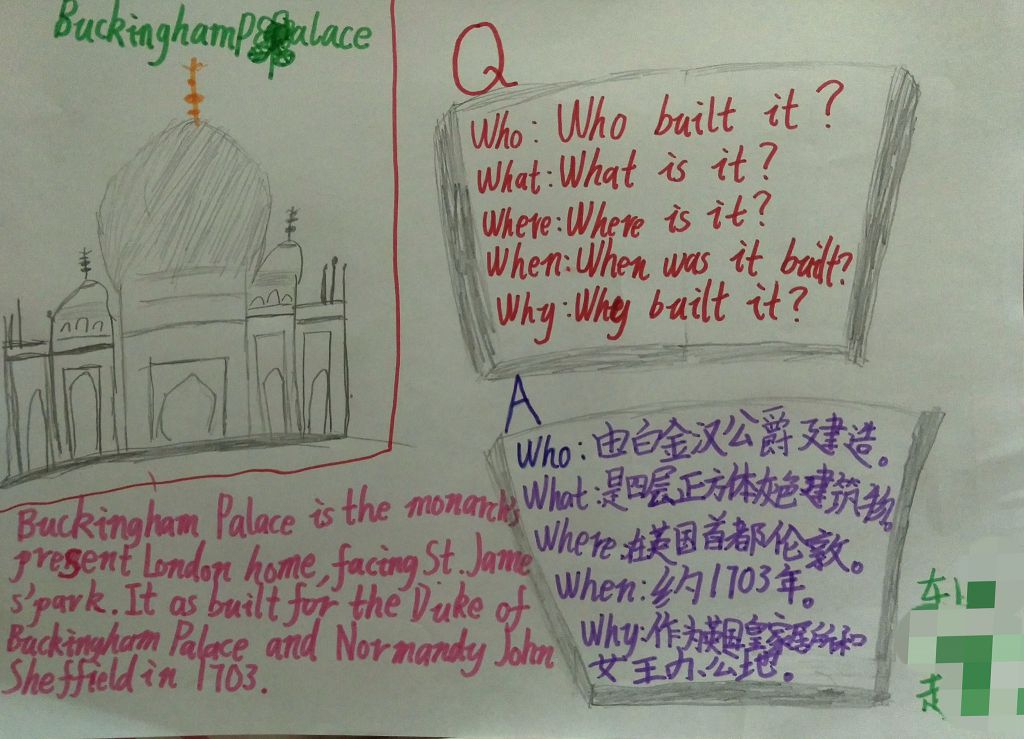 Buckingham Palace
Q
Who: Who built it?
What: What is it?
Where: Where is it?
When: When was it built?
Why: Why built it?
A
Who: 由白金汉公爵建造。
What: 是四层正方体灰色建筑物。
Where: 在英国首都伦敦。
When: 约1703年。
Why: 作为英国皇家居所和
女王办公地。
Buckingham Palace is the monarch's
present London home, facing St. Jame
s' park. It as built for the Duke of
Buckingham Palace and Normandy John
Sheffield in 1703.